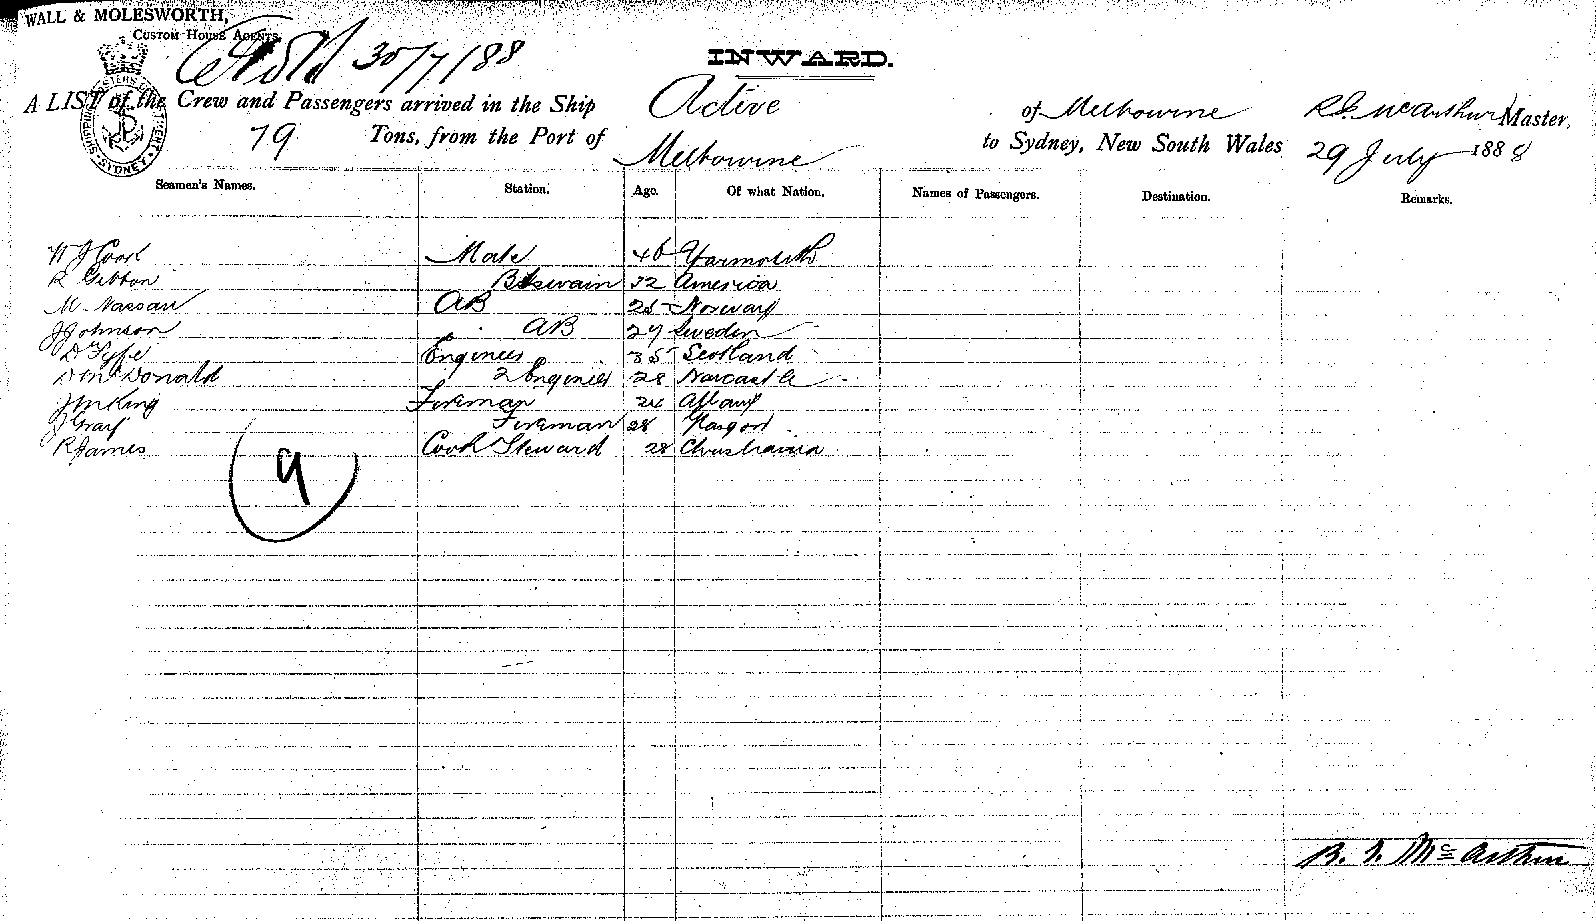 WALL & MOLESWORTH,
CUSTOM HOUSE AGENTS.
30/7/88
INWARD.
A LIST of the Crew and Passengers arrived in the Ship Active of Melbourne R. McArthur Master,
79 Tons, from the Port of Melbourne to Sydney, New South Wales 29 July 1888
SHIPPING MASTERS SYDNEY
Seamen's Names. Station. Age. Of what Nation. Names of Passengers. Destination. Remarks.
W J Cook Mate 46 Yarmouth
R Gibbon Boatswain 32 America
M Nassau AB 25 Norway
J Johnson AB 27 Sweden
D Fyfe Engineer 35 Scotland
D McDonald 2 Engineer 28 Newcastle
J McKing Fireman 26
J Gray Fireman 28 Glasgow
R James Cook Steward 28 Christiania
9
McArthur